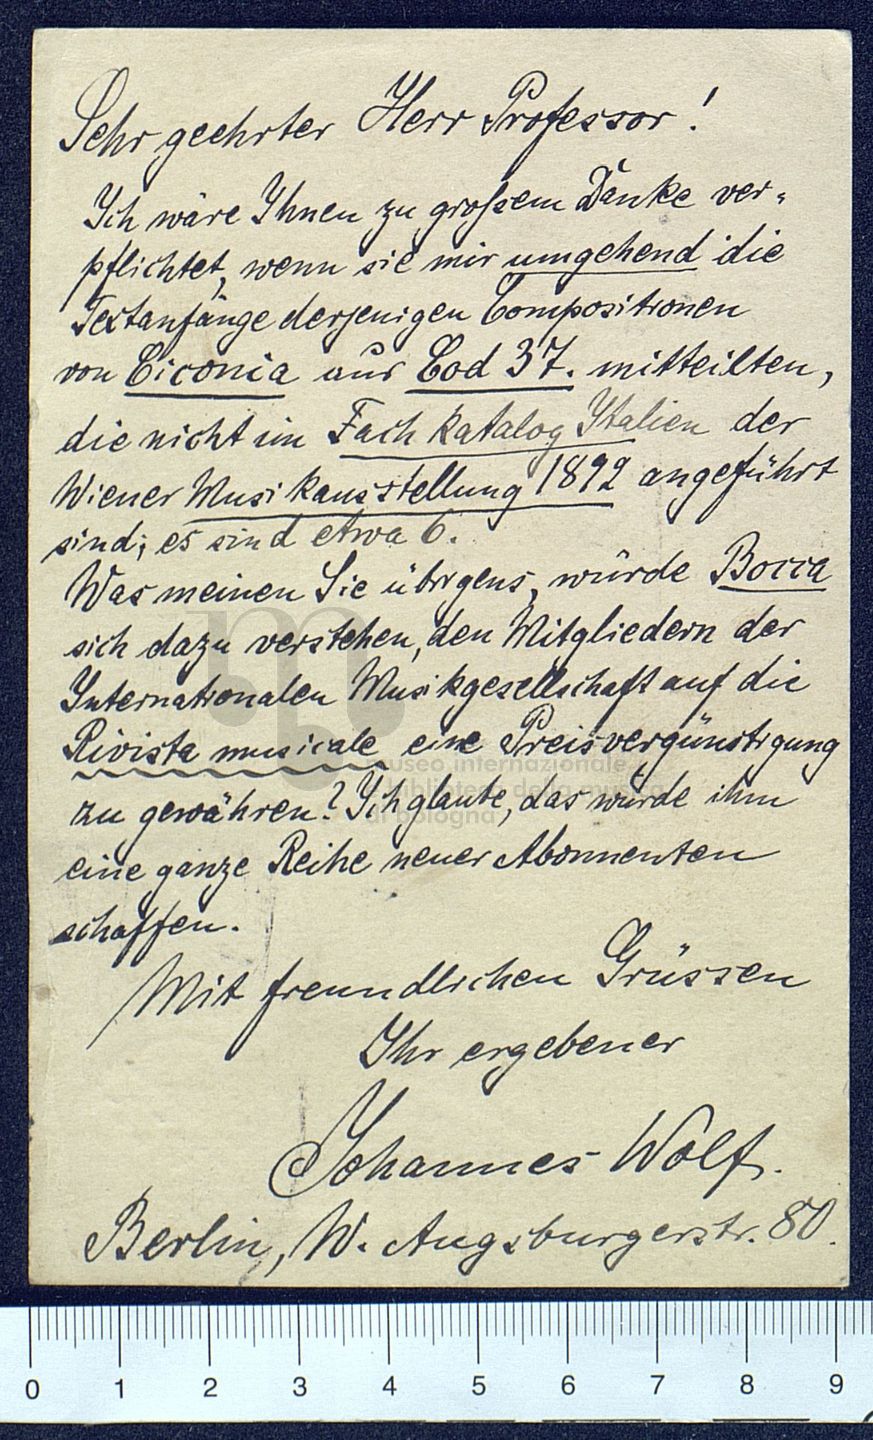 Sehr geehrter Herr Professor!
Ich wäre Ihnen zu großem Danke ver-
pflichtet, wenn sie mir umgehend die
Textanfänge derjenigen Compositionen
von Ciconia aus Cod 37. mitteilten,
die nicht im Fachkatalog Italien der
Wiener Musikausstellung 1892 angeführt
sind; es sind etwa 6.
Was meinen Sie übrigens, würde Bocca
sich dazu verstehen, den Mitgliedern der
Internationalen Musikgesellschaft auf die
Rivista musicale eine Preisvergünstigung
museo internazionale
zu gewähren? Ich glaube, das würde ihm
e biblioteca della musica
di bologna
eine ganze Reihe neuer Abonnenten
schaffen.
Mit freundlichen Grüssen
Ihr ergebener
Johannes Wolf.
Berlin, W. Augsburgerstr. 80.
0 1 2 3 4 5 6 7 8 9